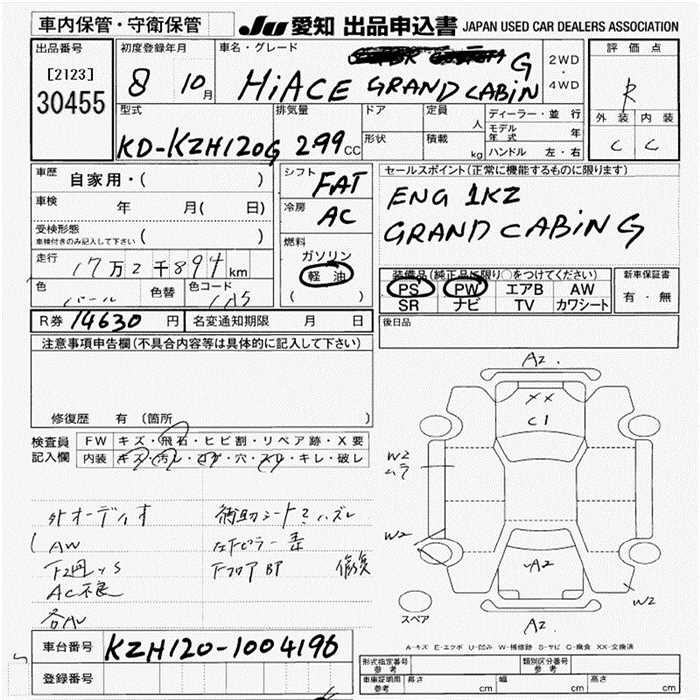 車内保管・守衛保管
JU 愛知 出品申込書 JAPAN USED CAR DEALERS ASSOCIATION
出品番号
[2123]
30455
初度登録年月
8 10月
車名・グレード
G
HiACE GRAND CABiN
2WD
・
4WD
評価点
R
外装 内装
C C
型式
KD-KZH120G
排気量
299 CC
ドア
形状
定員
人
積載
kg
ディーラー・並行
モデル年式 年
ハンドル 左・右
車歴 自家用・( )
車検 年 月( 日)
受検形態
車検付きのみ記入して下さい ( )
走行 17万2千894km
色 パール 色替 色コード
シフト FAT
冷房 AC
燃料
ガソリン
軽油
( )
セールスポイント(正常に機能するものに限ります)
ENG 1KZ
GRAND CABiN G
装備品(純正品に限り○をつけてください)
PS PW エアB AW
SR ナビ TV カワシート
新車保証書
有・無
R券 14630 円 名変通知期限 月 日
後日品
注意事項申告欄(不具合内容等は具体的に記入して下さい)
修復歴 有 (箇所 )
検査員記入欄
FW キズ・飛石・ヒビ割・リペア跡・X要
内装 キズ・汚レ・コゲ・穴・スレ・キレ・破レ
外オーディオ
AW
AC不良
補助シート
修復
A2.
XX
C1
W2
ムラ
W2
A2
W2
A2.
スペア
A-キズ E-エクボ U-凹み W-補修跡 S-サビ C-腐食 XX-交換済
車台番号 KZH120-1004196
登録番号
形式指定番号
参考
類別区分番号
参考
車庫証明用
参考
長さ cm 幅 cm 高さ cm